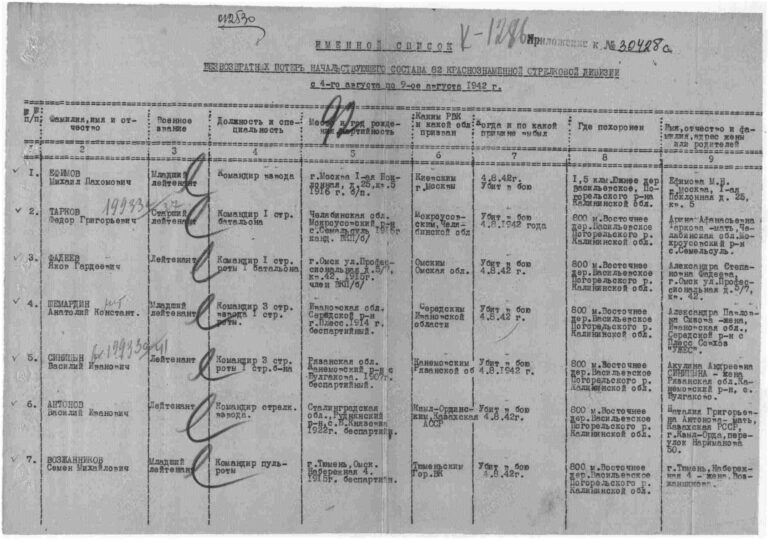 И М Е Н Н О Й  С П И С О К
К-1286
Приложение к № 30428с
БЕЗВОЗВРАТНЫХ ПОТЕРЬ НАЧАЛЬСТВУЮЩЕГО СОСТАВА 82 КРАСНОЗНАМЕННОЙ СТРЕЛКОВОЙ ДИВИЗИИ
с 4-го августа по 9-ое августа 1942 г.
92
№№ п/п
Фамилия, имя и отчество
Военное звание
Должность и специальность
Место и год рождения партийность
Каким РВК и какой обл. призван
Когда и по какой причине выбыл
Где похоронен
Имя, отчество и фамилия, адрес жены или родителей
2 3 4 5 6 7 8 9
1. ЕФИМОВ
Михаил Пахомович
Младший
лейтенант
Командир взвода
г.Москва 1-ая Поклонная, д.25, кв.5
1916 г. б/п.
Киевским
г.Москвы
4.8.42г.
Убит в бою
1,5 клм.Южнее дер
Васильевское, Погорельского р-на
Калининской обл
Ефимова М.Н.
г.Москва, 1-ая
Поклонная д 25,
кв. 5
2. ТАРКОВ
Федор Григорьевич
Старший
лейтенант
Командир I стр.
батальона
Челябинская обл.
Мокроусовский р-н
Мокроусов-
ским, Челябинской обл
Убит в бою
4.8.1942 года
800 м.Восточнее
дер.Васильевское
Погорельского р.
Калининской обл.
Таркова -мать, Челябинская обл.Мокроусовский р-н
с.Семельсуль.
3. ФАДЕЕВ
Яков Гардеевич
Лейтенант
Командир I стр.
роты I батальона
г.Омск ул.Профессиональная д.5/7,
кв.42. 1915г.
член ВКП/б/
Омским
Омская обл.
Убит в бою
4.8.42 г.
800 м.Восточнее
дер.Васильевское
Погорельского р.
Калининской обл.
Александра Степановна Фадеева,
г.Омск ул.Профессиональная д.5/7,
кв. 42.
4. ШЕМАРДИН
Анатолий Констант.
Младший
лейтенант
Командир 3 стр.
взвода I стр.
роты.
Ивановская обл.
Середской р-н
г.Плес.1914 г.
беспартийный.
Середским
Ивановской
области
Убит в бою
4.8.42 г.
800 м.Восточнее
дер.Васильевское
Погорельского р.
Калининской обл.
Александра Павловна -жена,
Ивановская обл.,
Середской р-н с
Плесс Совхов
5. СИНИЦЫН
Василий Иванович
Лейтенант
Командир 3 стр.
роты I стр.б-на
Рязанская обл.
Канемовский р-н с
Булгаково. 1907г.
беспартийный.
Канемовским
Рязанской об
Убит в бою
4.8.1942 г.
800 м.Восточнее
дер.Васильевское
Погорельского р.
Калининской обл.
Акулина Андреевна
СИНИЦЫНА - жена
Рязанская обл.Канемовский р-н, с.
Булгаково.
6. АНТОНОВ
Василий Иванович
Лейтенант
Командир стрелк.
взвода.
Сталинградская
обл., Руднянский
р-н, с.Б.Князевка
1922г. беспартийн.
Кзыл-Ордин-
ским, Казахская
АССР
Убит в бою
4.8.42г.
800 м.Восточнее
дер.Васильевское
Погорельского р.
Калининской обл.
Наталия Григорьевна Антонова-мать,
Казахская РССР,
г.Кзыл-Орда, переулок Нариманова
50.
7. ВОЗЖАННИКОВ
Семен Михайлович
Младший
лейтенант
Командир пульроты
г.Тюмень, Омск.
Набережная 4.
1915г. беспартийн.
Тюменьским
Гор.ВК
Убит в бою
4.8.42г.
800 м.Восточнее
дер.Васильевское
Погорельского р.
Калининской обл.
г.Тюмень, Набережная 4 - жена, Возжанникова.